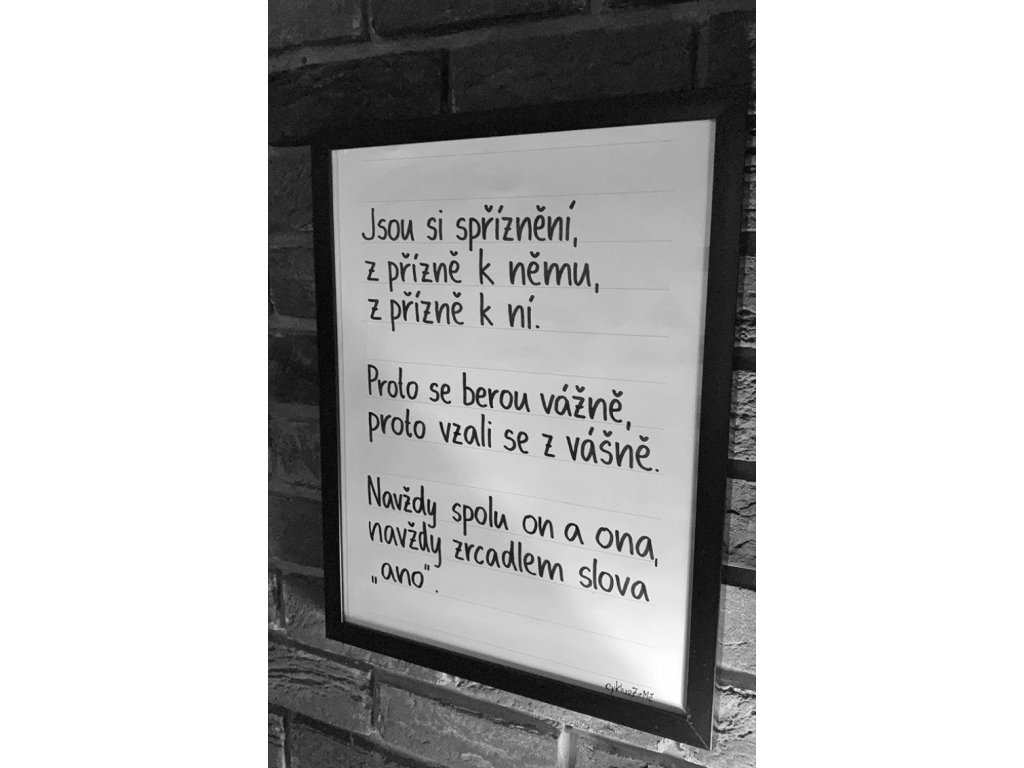 Jsou si spříznění,
z přízně k němu,
z přízně k ní.
Proto se berou vážně,
proto vzali se z vášně.
Navždy spolu on a ona,
navždy zrcadlem slova
„ano“.